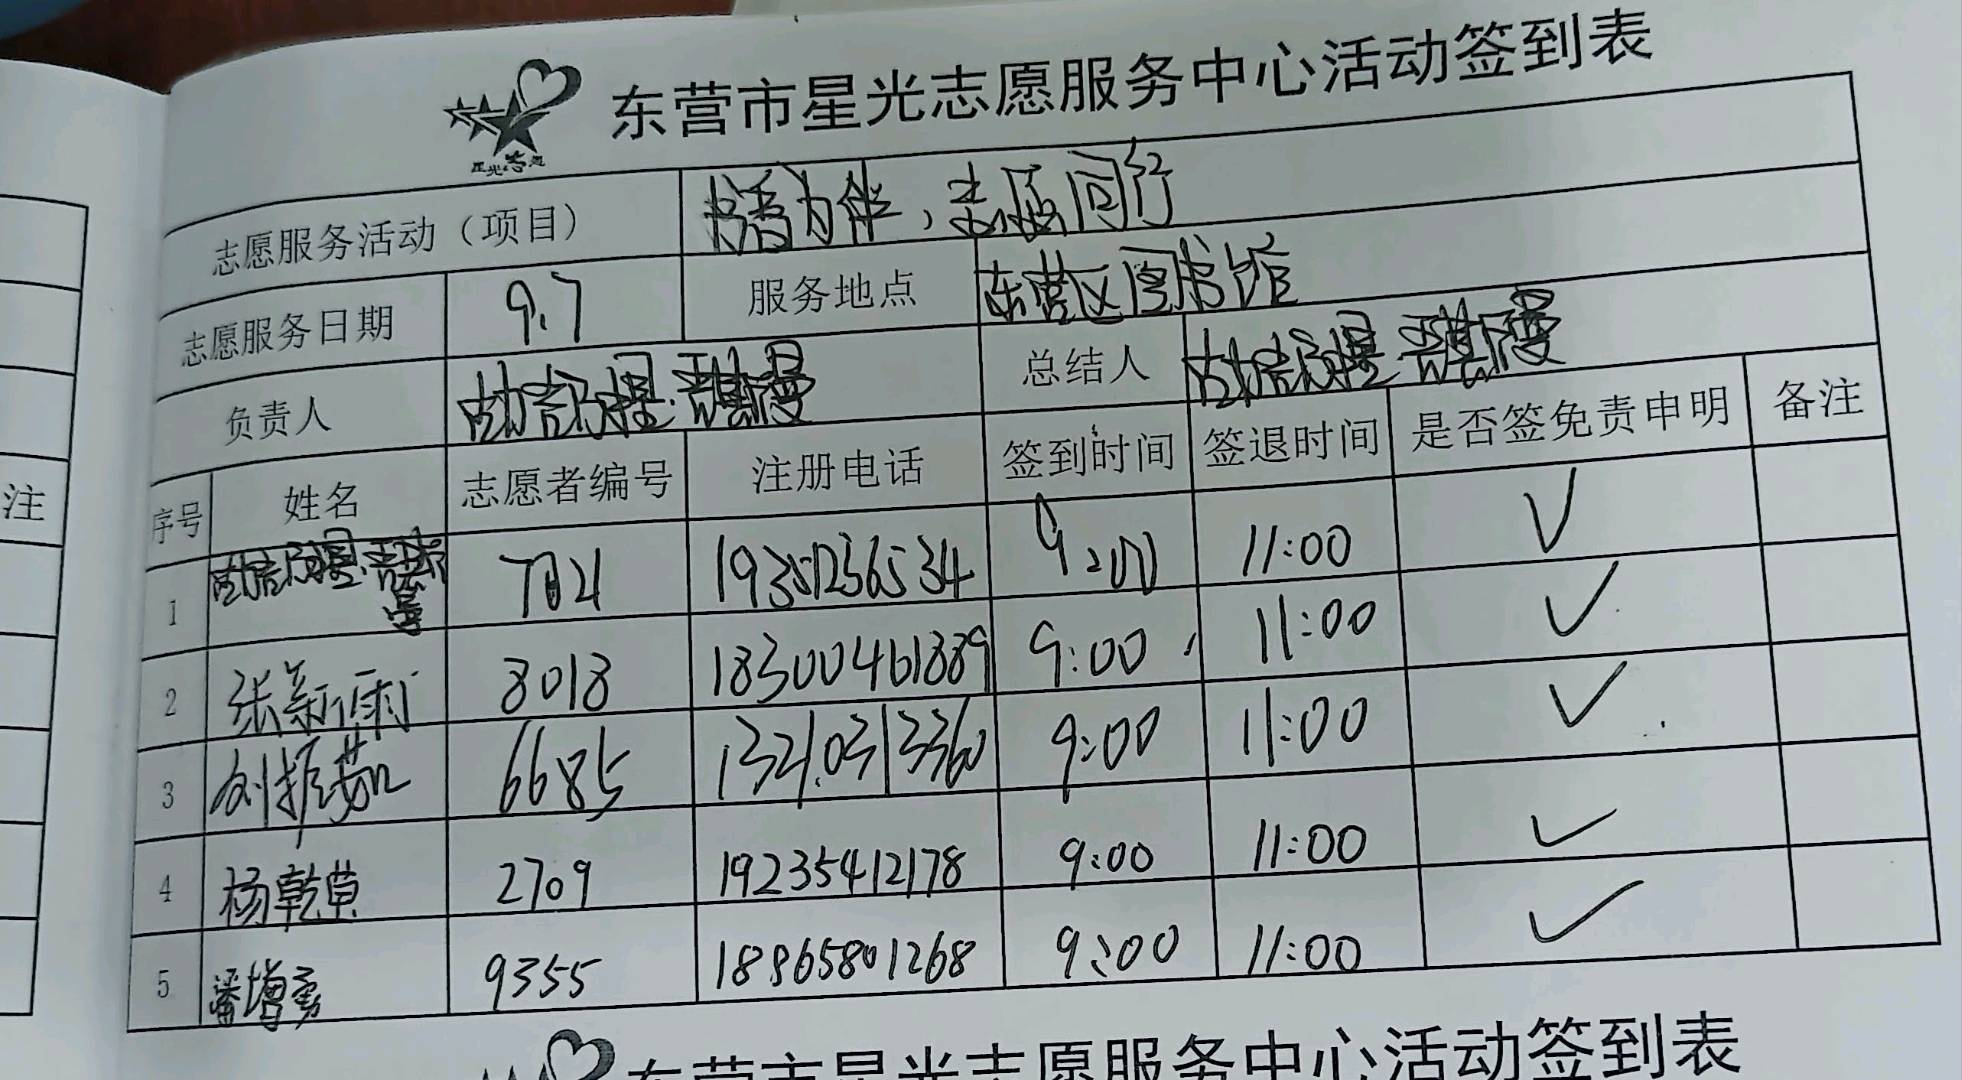 东营市星光志愿服务中心活动签到表
星光志愿
志愿服务活动（项目） 书香为伴，志愿同行
志愿服务日期 9.7 服务地点 东营区图书馆
负责人 总结人
序号 姓名 志愿者编号 注册电话 签到时间 签退时间 是否签免责申明 备注
1 9:00 11:00 ✓
2 张新雨 8018 18300461889 9:00 11:00 ✓
3 刘振茹 6685 13210313360 9:00 11:00 ✓
4 杨乾草 2709 19235412178 9:00 11:00 ✓
5 潘增勇 9355 18865801268 9:00 11:00 ✓
东营市星光志愿服务中心活动签到表
注